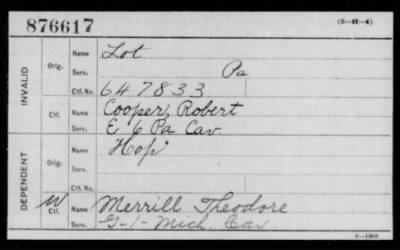 876617 (3-H-4)
INVALID
Orig. Name Lot
Serv. Pa
Ctf. No. 647833
Ctf. Name Cooper, Robert
Serv. E 6 Pa Cav.
DEPENDENT
Orig. Name Hop
Serv.
W Ctf. Name Merrill Theodore
Serv. G-1-Mich. Cav